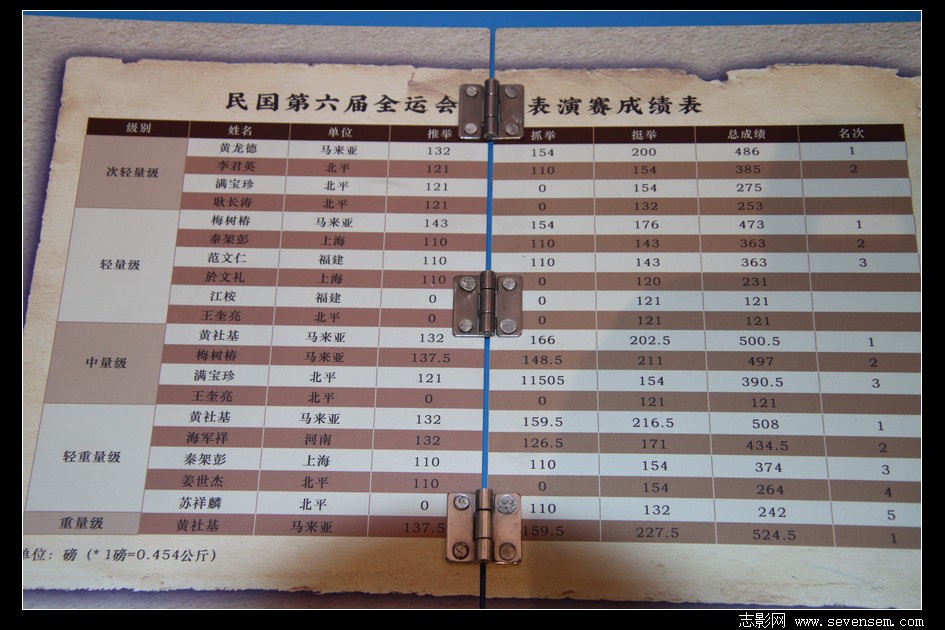 民国第六届全运会 表演赛成绩表
级别 姓名 单位 推举 抓举 挺举 总成绩 名次
次轻量级 黄龙德 马来亚 132 154 200 486 1
李君英 北平 121 110 154 385 2
满宝珍 北平 121 0 154 275
耿长涛 北平 121 0 132 253
轻量级 梅树椿 马来亚 143 154 176 473 1
秦架彭 上海 110 110 143 363 2
范文仁 福建 110 110 143 363 3
於文礼 上海 110 0 120 231
江桉 福建 0 0 121 121
王奎亮 北平 0 0 121 121
中量级 黄社基 马来亚 132 166 202.5 500.5 1
梅树椿 马来亚 137.5 148.5 211 497 2
满宝珍 北平 121 11505 154 390.5 3
王奎亮 北平 0 0 121 121
轻重量级 黄社基 马来亚 132 159.5 216.5 508 1
海军祥 河南 132 126.5 171 434.5 2
秦架彭 上海 110 110 154 374 3
姜世杰 北平 110 0 154 264 4
苏祥麟 北平 0 110 132 242 5
重量级 黄社基 马来亚 137.5 159.5 227.5 524.5 1
单位：磅（*1磅=0.454公斤）
志影网 www.sevensem.com